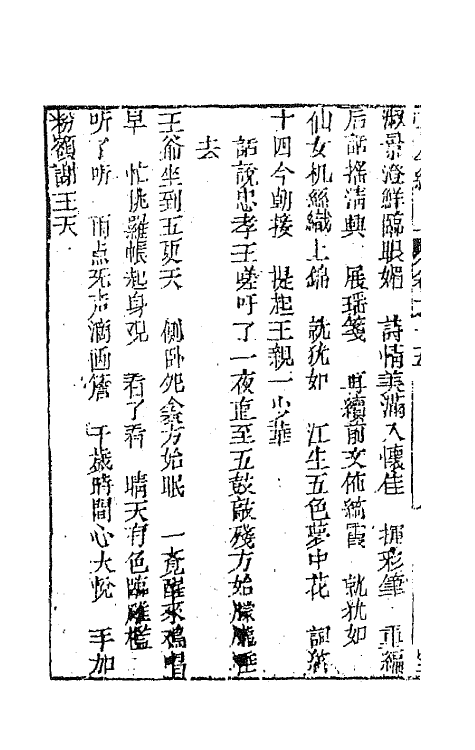 淑景澄鮮臨眼媚　詩情美滿入懷佳　揮彩筆　重編
后話搖清興　展瑤箋　再續前文佈綺霞　就犹如
仙女机絲織上錦　就犹如　江生五色夢中花　詞第
十四今朝接　提起王親一少華
話說忠孝王嗟吁了一夜直至五鼓敲殘方始朦朧睡
去
王爺坐到五更天　側卧死衾方始眠　一竟醒來鷄唱
早　忙挑羅帳起身覌　看了看　晴天有色臨雕檻
听了听　雨点死声滴画簷　千歲時間心大悅　手加
粉額謝王天